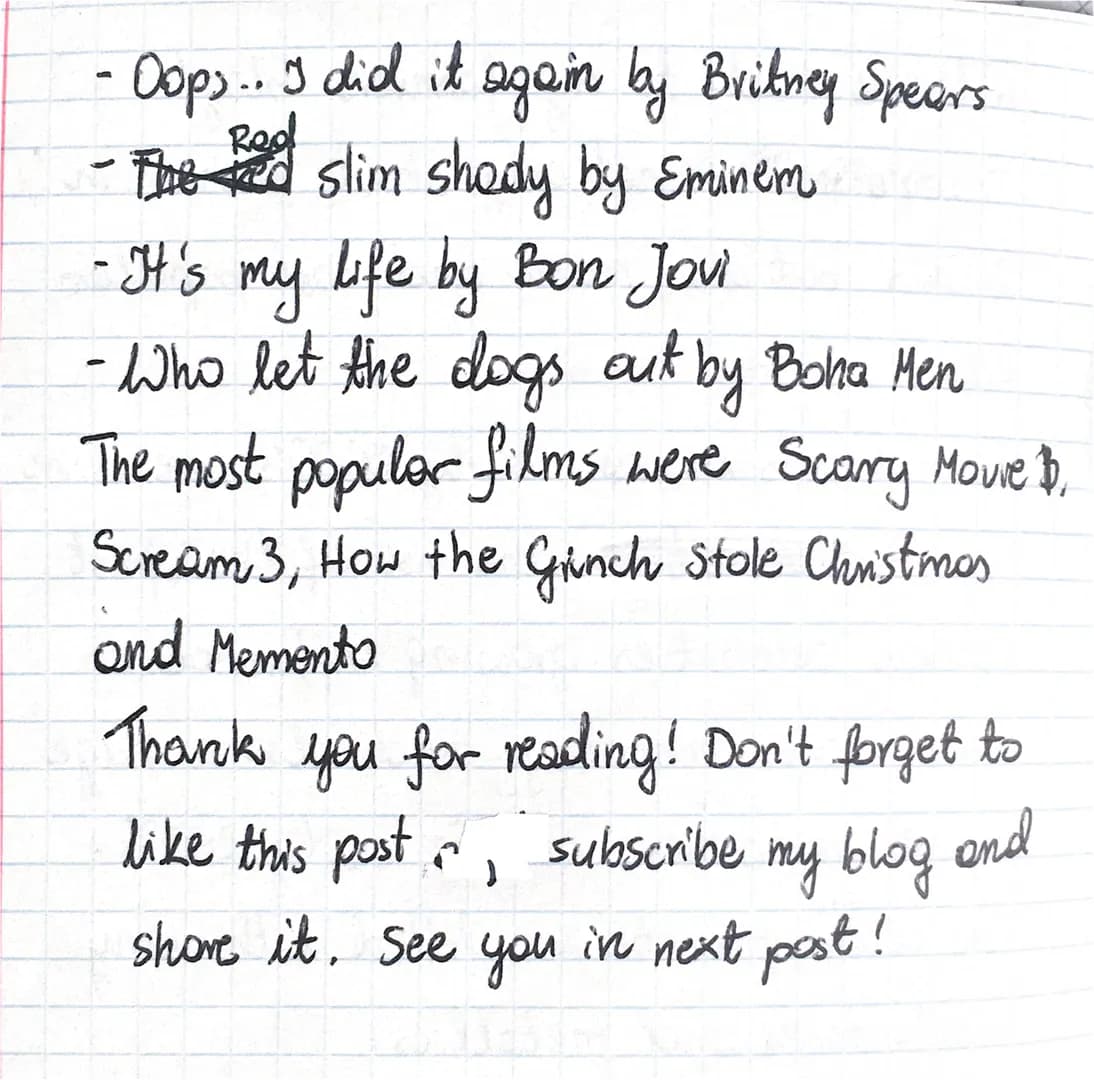 - Oops.. I did it again by Britney Spears
- Real slim shady by Eminem
- It's my life by Bon Jovi
- Who let the dogs out by Boha Men
The most popular films were Scary Movie,
Scream 3, How the Grinch Stole Christmas
and Memento
Thank you for reading! Don't forget to
like this post , subscribe my blog and
share it. See you in next post!